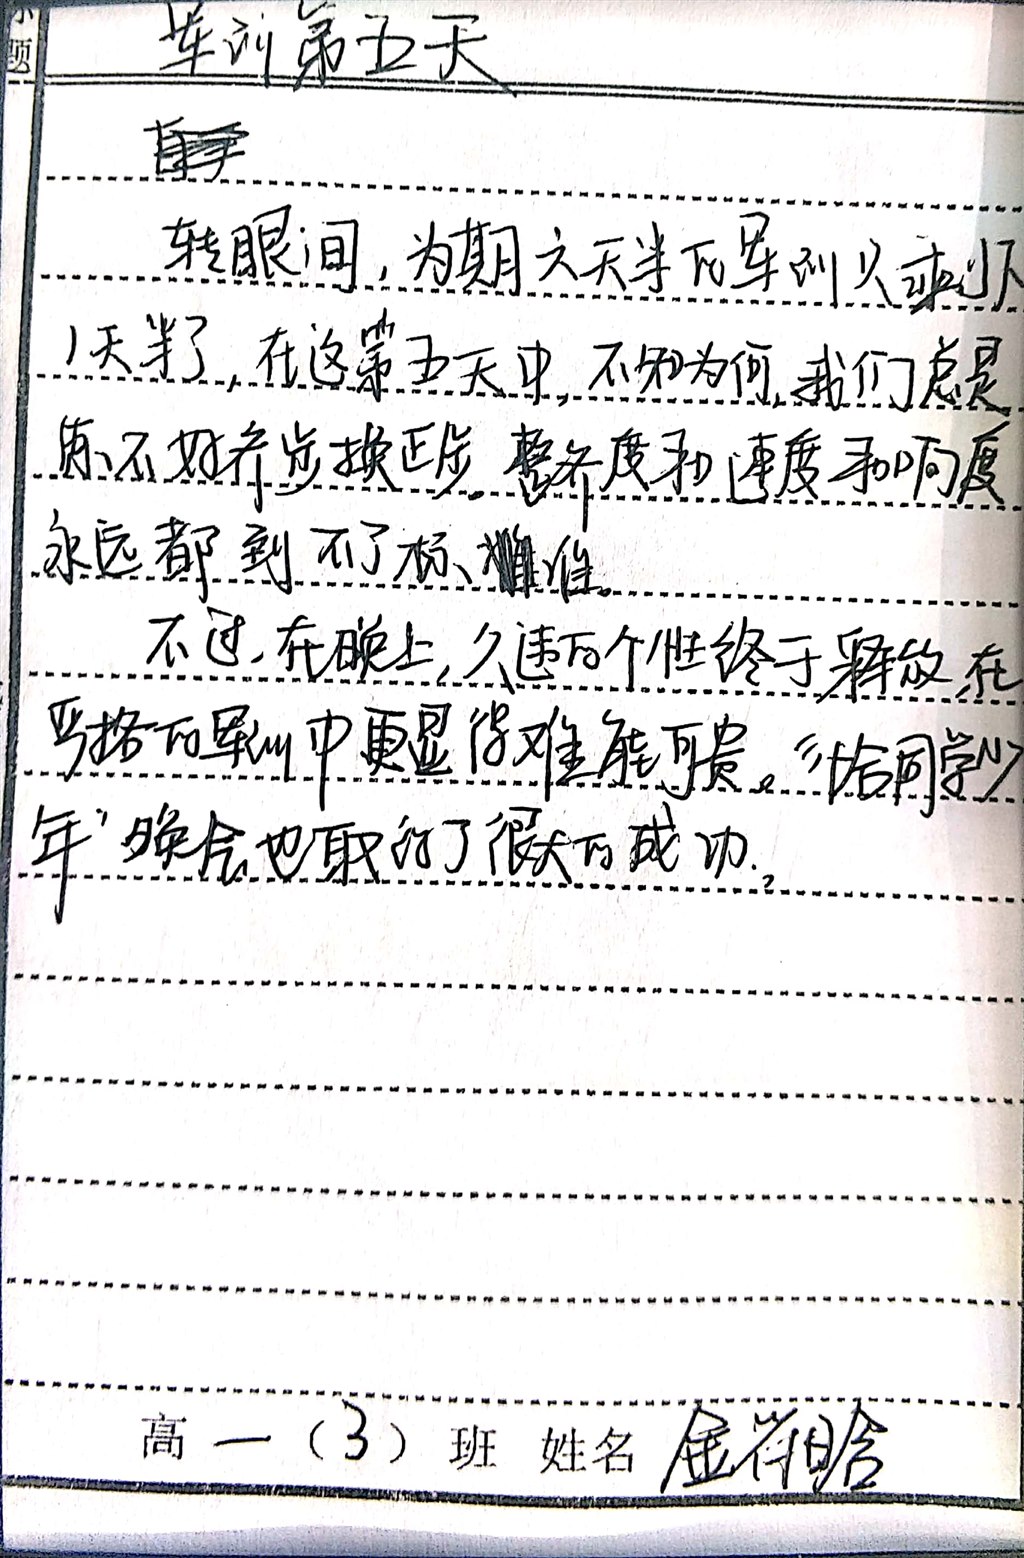 小
题
军训第五天
转眼间,为期六天半的军训只剩下
1天半了,在这第五天中,不知为何,我们总是
练不好齐步换正步。整齐度和速度和响度
永远都到不了标准。
不过,在晚上,久违的个性终于释放,在
严格的军训中更显得难能可贵。“恰同学少
年”晚会也取得了很大的成功.
高一(3)班 姓名 金